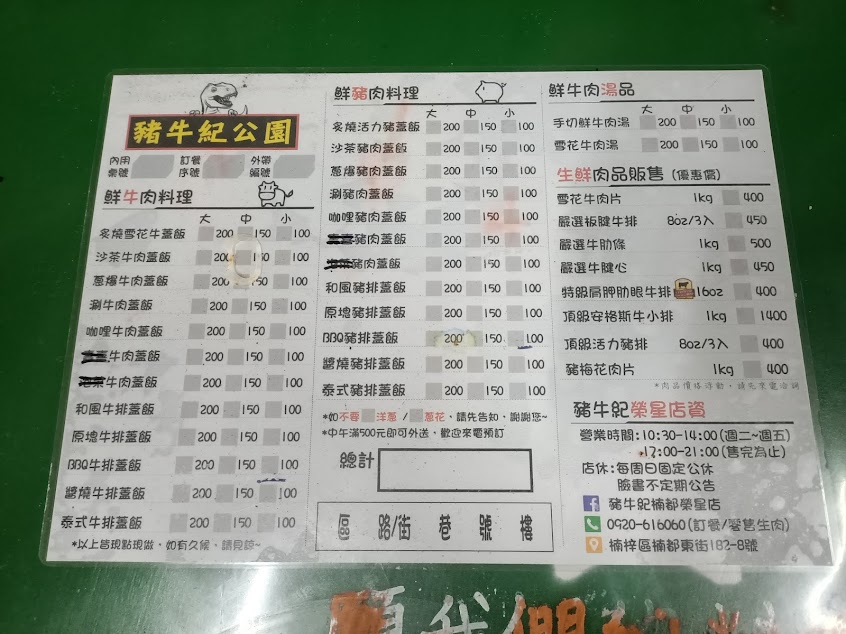 豬牛紀公園
內用 桌號 訂餐 序號 外帶 編號
鮮牛肉料理
大 中 小
炙燒雪花牛蓋飯 200 150 100
沙茶牛肉蓋飯 200 150 100
蔥爆牛肉蓋飯 200 150 100
涮牛肉蓋飯 200 150 100
咖哩牛肉蓋飯 200 150 100
牛肉蓋飯 200 150 100
牛肉蓋飯 200 150 100
和風牛排蓋飯 200 150 100
原塊牛排蓋飯 200 150 100
BBQ牛排蓋飯 200 150 100
醬燒牛排蓋飯 200 150 100
泰式牛排蓋飯 200 150 100
*以上皆現點現做，如有久候，請見諒~
鮮豬肉料理
大 中 小
炙燒活力豬蓋飯 200 150 100
沙茶豬肉蓋飯 200 150 100
蔥爆豬肉蓋飯 200 150 100
涮豬肉蓋飯 200 150 100
咖哩豬肉蓋飯 200 150 100
豬肉蓋飯 200 150 100
豬肉蓋飯 200 150 100
和風豬排蓋飯 200 150 100
原塊豬排蓋飯 200 150 100
BBQ豬排蓋飯 200 150 100
醬燒豬排蓋飯 200 150 100
泰式豬排蓋飯 200 150 100
*如不要 洋蔥 / 蔥花，請先告知，謝謝您~
*中午滿500元即可外送，歡迎來電預訂
總計
區 路/街 巷 號 樓
鮮牛肉湯品
大 中 小
手切鮮牛肉湯 200 150 100
雪花牛肉湯 200 150 100
生鮮肉品販售 (優惠價)
雪花牛肉片 1kg 400
嚴選板腱牛排 8oz/3入 450
嚴選牛肋條 1kg 500
嚴選牛腱心 1kg 450
特級肩胛肋眼牛排 16oz 400
頂級安格斯牛小排 1kg 1400
頂級活力豬排 8oz/3入 400
豬梅花肉片 1kg 400
*肉品價格浮動，請先來電洽詢
豬牛紀榮星店資
營業時間:10:30-14:00(週二~週五)
17:00-21:00(售完為止)
店休:每周日固定公休
臉書不定期公告
豬牛紀楠都榮星店
0920-616060(訂餐/零售生肉)
楠梓區楠都東街182-8號